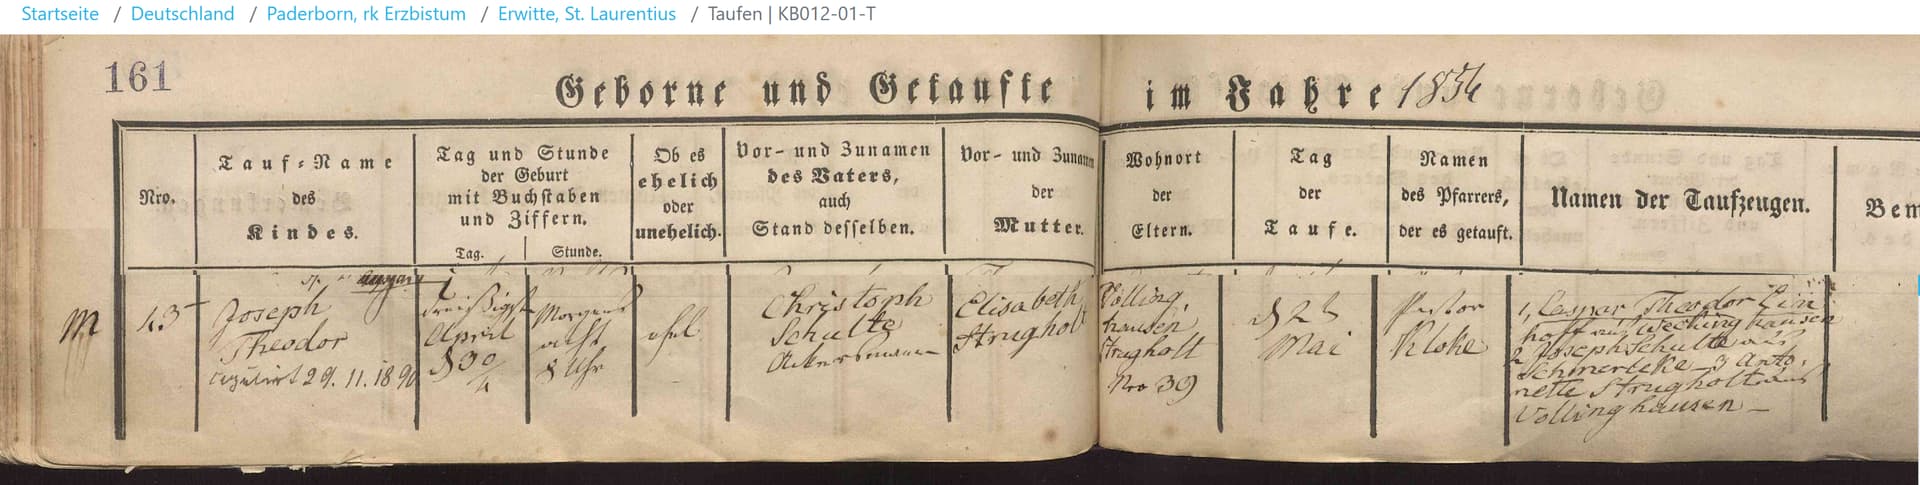 Startseite / Deutschland / Paderborn, rk Erzbistum / Erwitte, St. Laurentius / Taufen | KB012-01-T
161
Geborne und Getaufte im Jahre 1856
Nro.
Tauf-Name
des
Kindes.
Tag und Stunde
der Geburt
mit Buchstaben
und Ziffern.
Tag.
Stunde.
Ob es
ehelich
oder
unehelich.
Vor- und Zunamen
des Vaters,
auch
Stand desselben.
Vor- und Zunam
der
Mutter.
Wohnort
der
Eltern.
Tag
der
Taufe.
Namen
des Pfarrers,
der es getauft.
Namen der Taufzeugen.
Bem
M
43
Joseph
Theodor
29. 11. 1890
dreißigst
April
d 30
4
Morgens
acht
8 Uhr
ehel
Christoph
Schulte
Ackersmann
Elisabeth
Strugholt
Völling
hausen
Strugholt
Nro 39
d 2t
Mai
Pastor
Kloke
1, Caspar Theodor Lin
hoff aus Weckinghausen
2 Joseph Schulte aus
Schmerleke 3 Anto
nette Strugholt aus
Völlinghausen